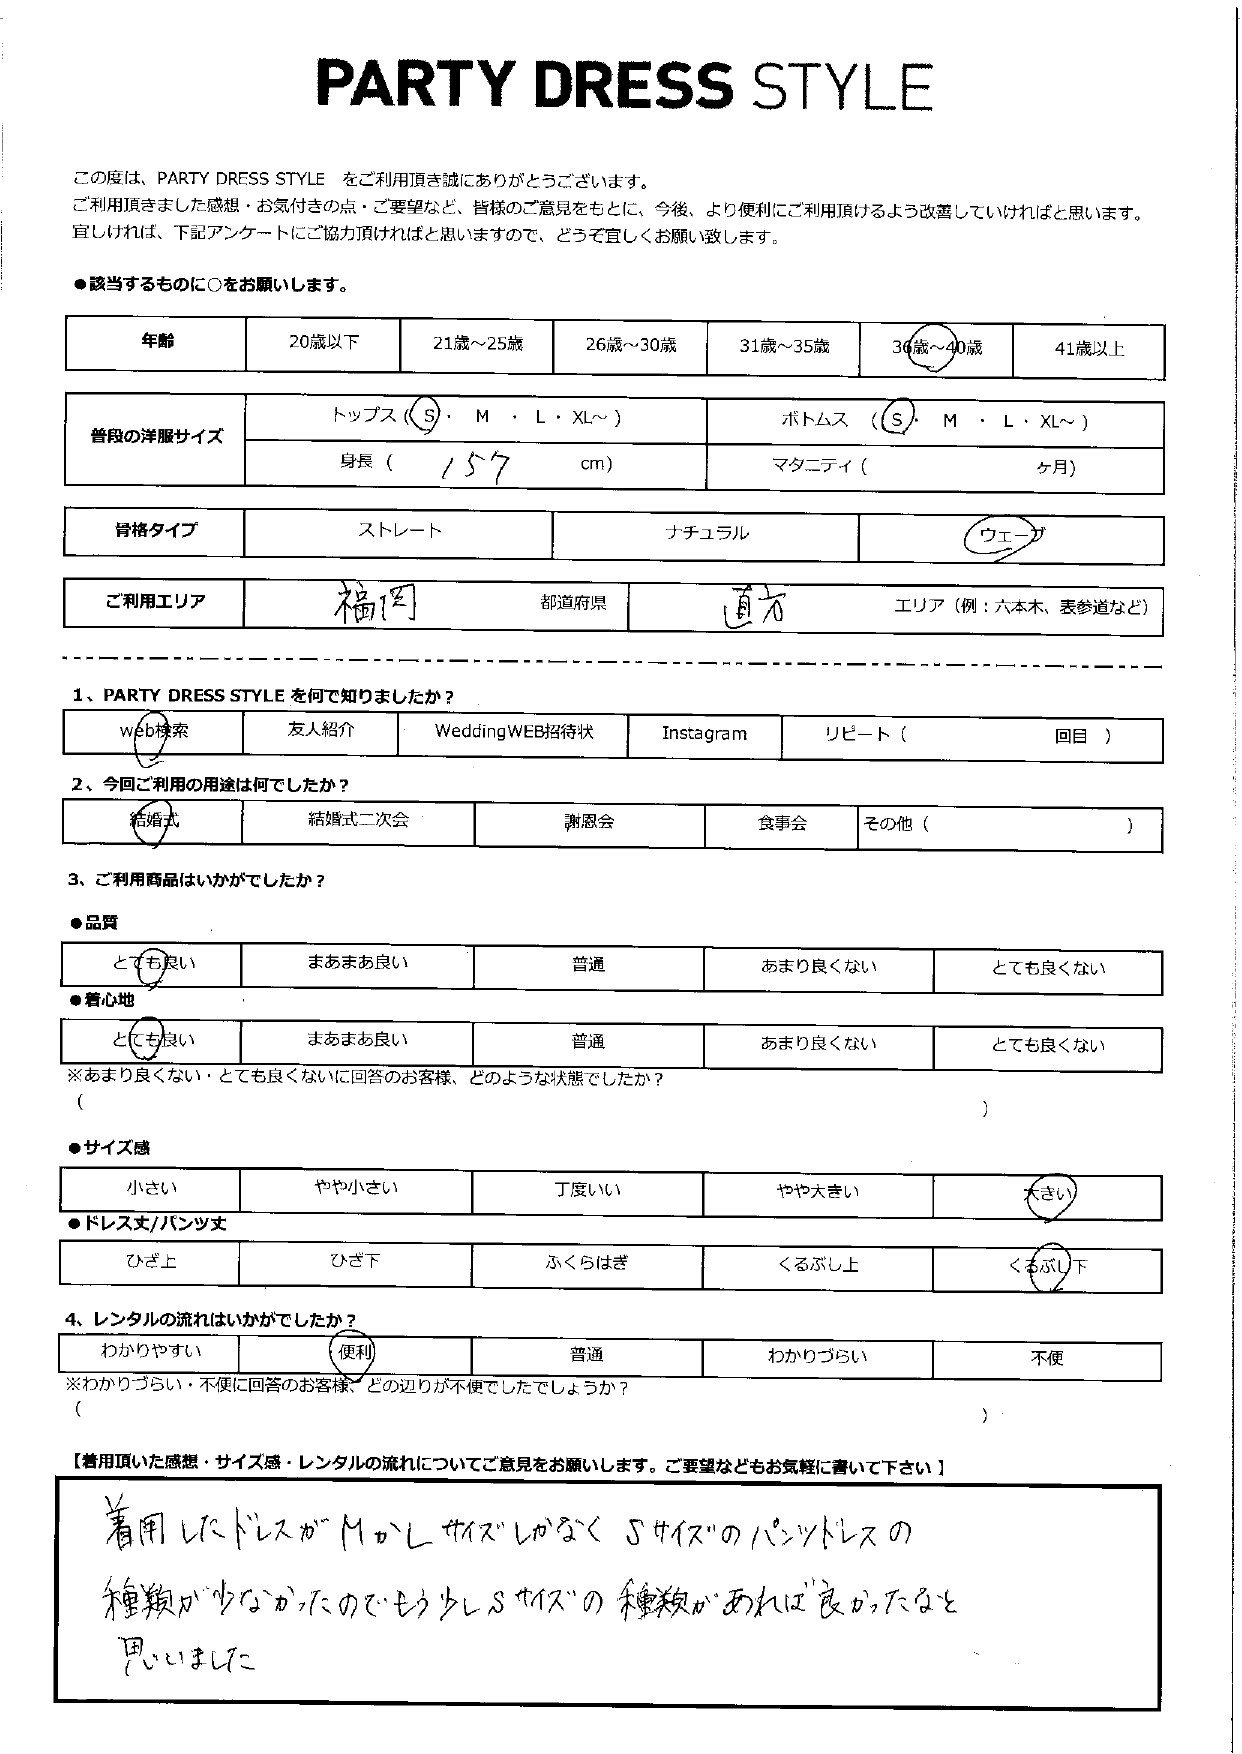 PARTY DRESS STYLE
この度は、PARTY DRESS STYLE　をご利用頂き誠にありがとうございます。
ご利用頂きました感想・お気付きの点・ご要望など、皆様のご意見をもとに、今後、より便利にご利用頂けるよう改善していければと思います。
宜しければ、下記アンケートにご協力頂ければと思いますので、どうぞ宜しくお願い致します。
●該当するものに○をお願いします。
年齢 20歳以下 21歳～25歳 26歳～30歳 31歳～35歳 36歳～40歳 41歳以上
普段の洋服サイズ トップス（S・ M ・ L・XL～） ボトムス （S・ M ・ L・XL～）
身長（ 157 cm） マタニティ（ ヶ月）
骨格タイプ ストレート ナチュラル ウェーブ
ご利用エリア 福岡 都道府県 直方 エリア（例：六本木、表参道など）
1、PARTY DRESS STYLE を何で知りましたか？
web検索 友人紹介 WeddingWEB招待状 Instagram リピート（ 回目 ）
2、今回ご利用の用途は何でしたか？
結婚式 結婚式二次会 謝恩会 食事会 その他（ ）
3、ご利用商品はいかがでしたか？
●品質
とても良い まあまあ良い 普通 あまり良くない とても良くない
●着心地
とても良い まあまあ良い 普通 あまり良くない とても良くない
※あまり良くない・とても良くないに回答のお客様、どのような状態でしたか？
（ ）
●サイズ感
小さい やや小さい 丁度いい やや大きい 大きい
●ドレス丈/パンツ丈
ひざ上 ひざ下 ふくらはぎ くるぶし上 くるぶし下
4、レンタルの流れはいかがでしたか？
わかりやすい 便利 普通 わかりづらい 不便
※わかりづらい・不便に回答のお客様、どの辺りが不便でしたでしょうか？
（ ）
【着用頂いた感想・サイズ感・レンタルの流れについてご意見をお願いします。ご要望などもお気軽に書いて下さい】
着用したドレスがMかLサイズしかなく Sサイズのパンツドレスの
種類が少なかったのでもう少しSサイズの種類があれば良かったなと
思いました